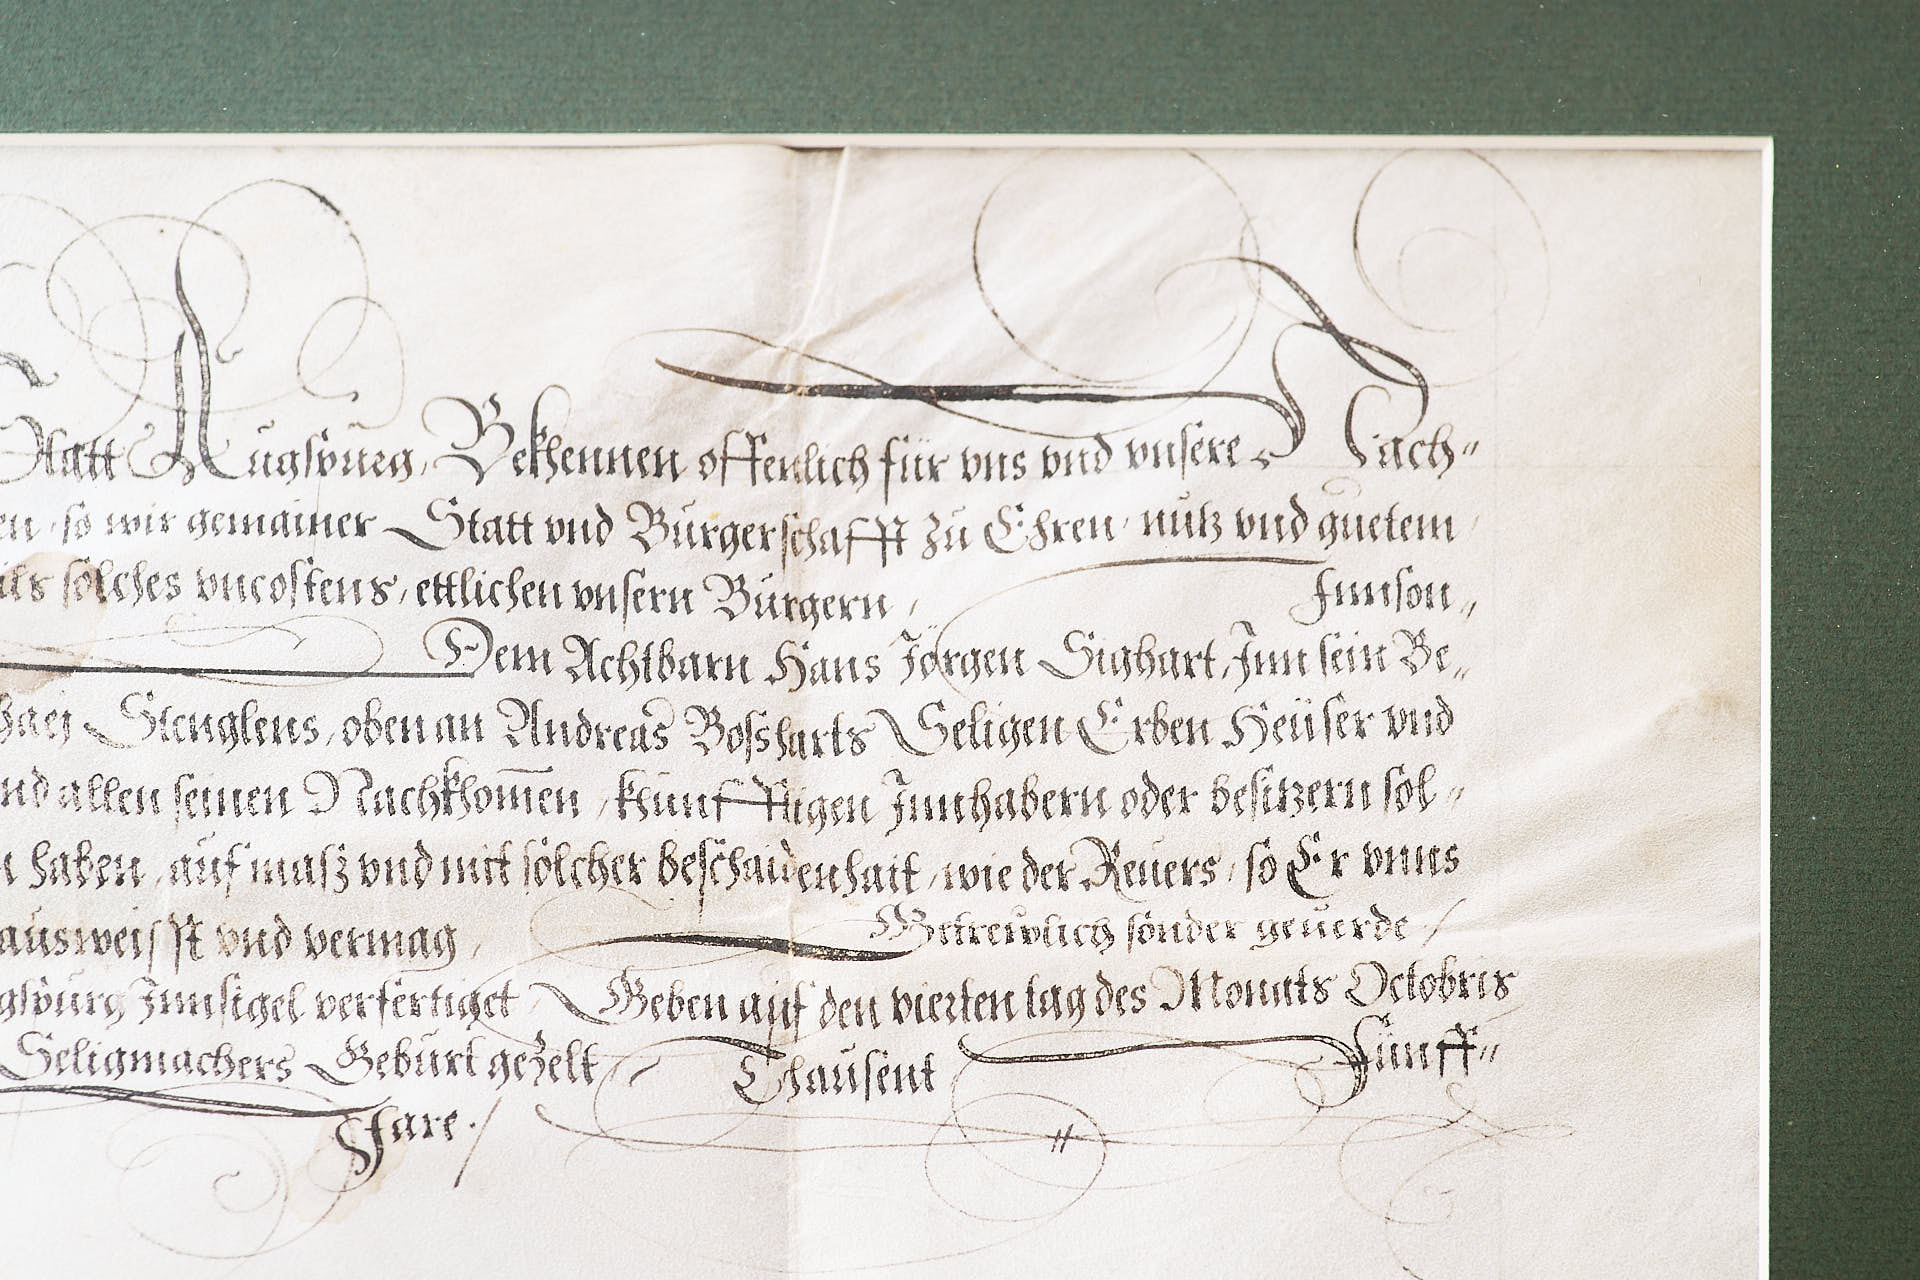 Statt Augspurg, Bekhennen offenlich für vns vnd vnsere Nach=
en, so wir gemainer Statt vnd Burgerschafft zu Ehren, nutz vnd guetem
ils solches vncostens, ettlichen vnsern Burgern, Innson=
Dem Achtbarn Hans Jörgen Sighart, Inn sein Be=
haej Stenglens, oben an Andreas Bossharts Seligen Erben Heüser vnd
nd allen seinen Nachkhom̅en, khunfftigen Innhabern oder besitzern sol=
n haben, auf masz vnd mit solcher beschaidenhait, wie der Reuers, so Er vnns
ausweisst vnd vermag, Getrewlich sonder geuerde /
gspurg Innsigel verfertiget, Geben auf den vierten tag des Monats Octobris
Seligmachers Geburt gezelt, Thausent Fünff=
Jare. /